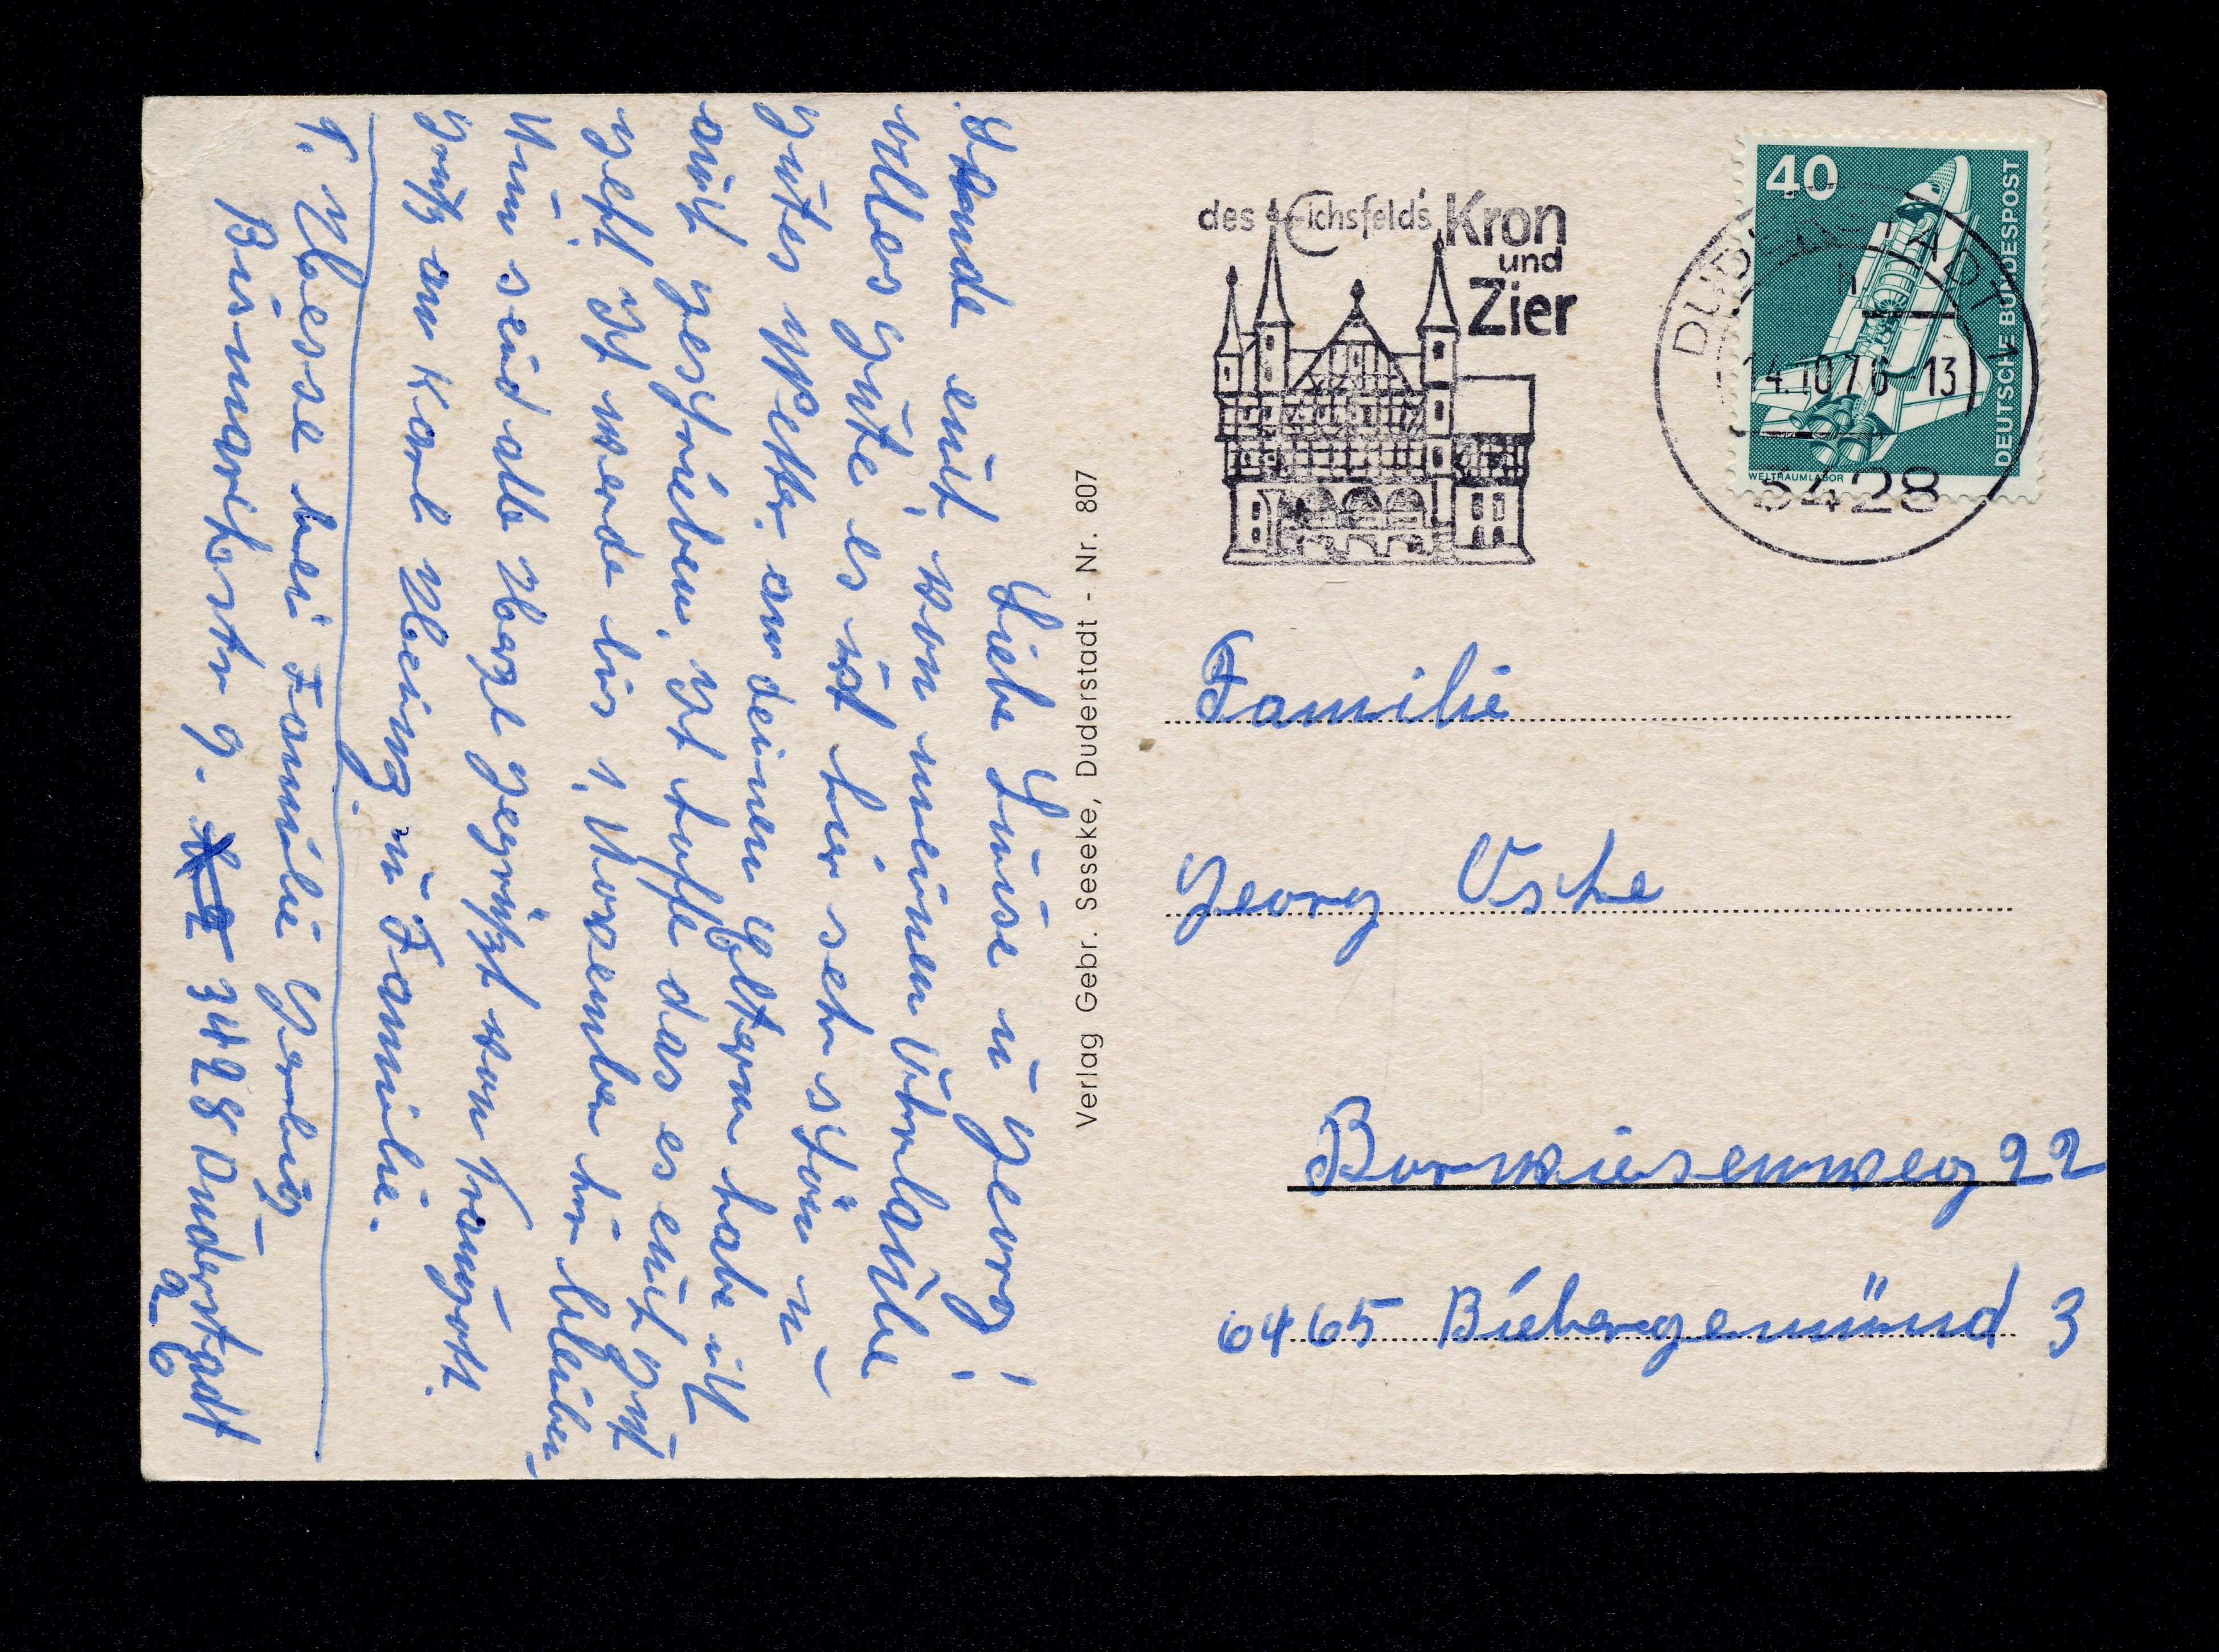 Liebe Luise u Georg!
Sende euch von meinem Uhrlaube
alles gute es ist hier sehr schön u
gutes Wetter, an deinen Eltern habe ich
auch geschrieben, ich hoffe das es euch gut
geht ich werde bis 1. November hir bleiben,
Nun seid alle Herzl gegrüßt von Traugott.
gruß an Karl u Familie.
T. bei Familie
Bismarckstr 9. 3428 Duderstadt
Verlag Gebr. Seseke, Duderstadt - Nr. 807
des Eichsfeld's Kron
und
Zier
40
DEUTSCHE BUNDESPOST
WELTRAUMLABOR
DUDERSTADT 1
14.10.76-13
3428
Familie
Georg Usche
Burwiesenweg 22
6465 Biebergemünd 3